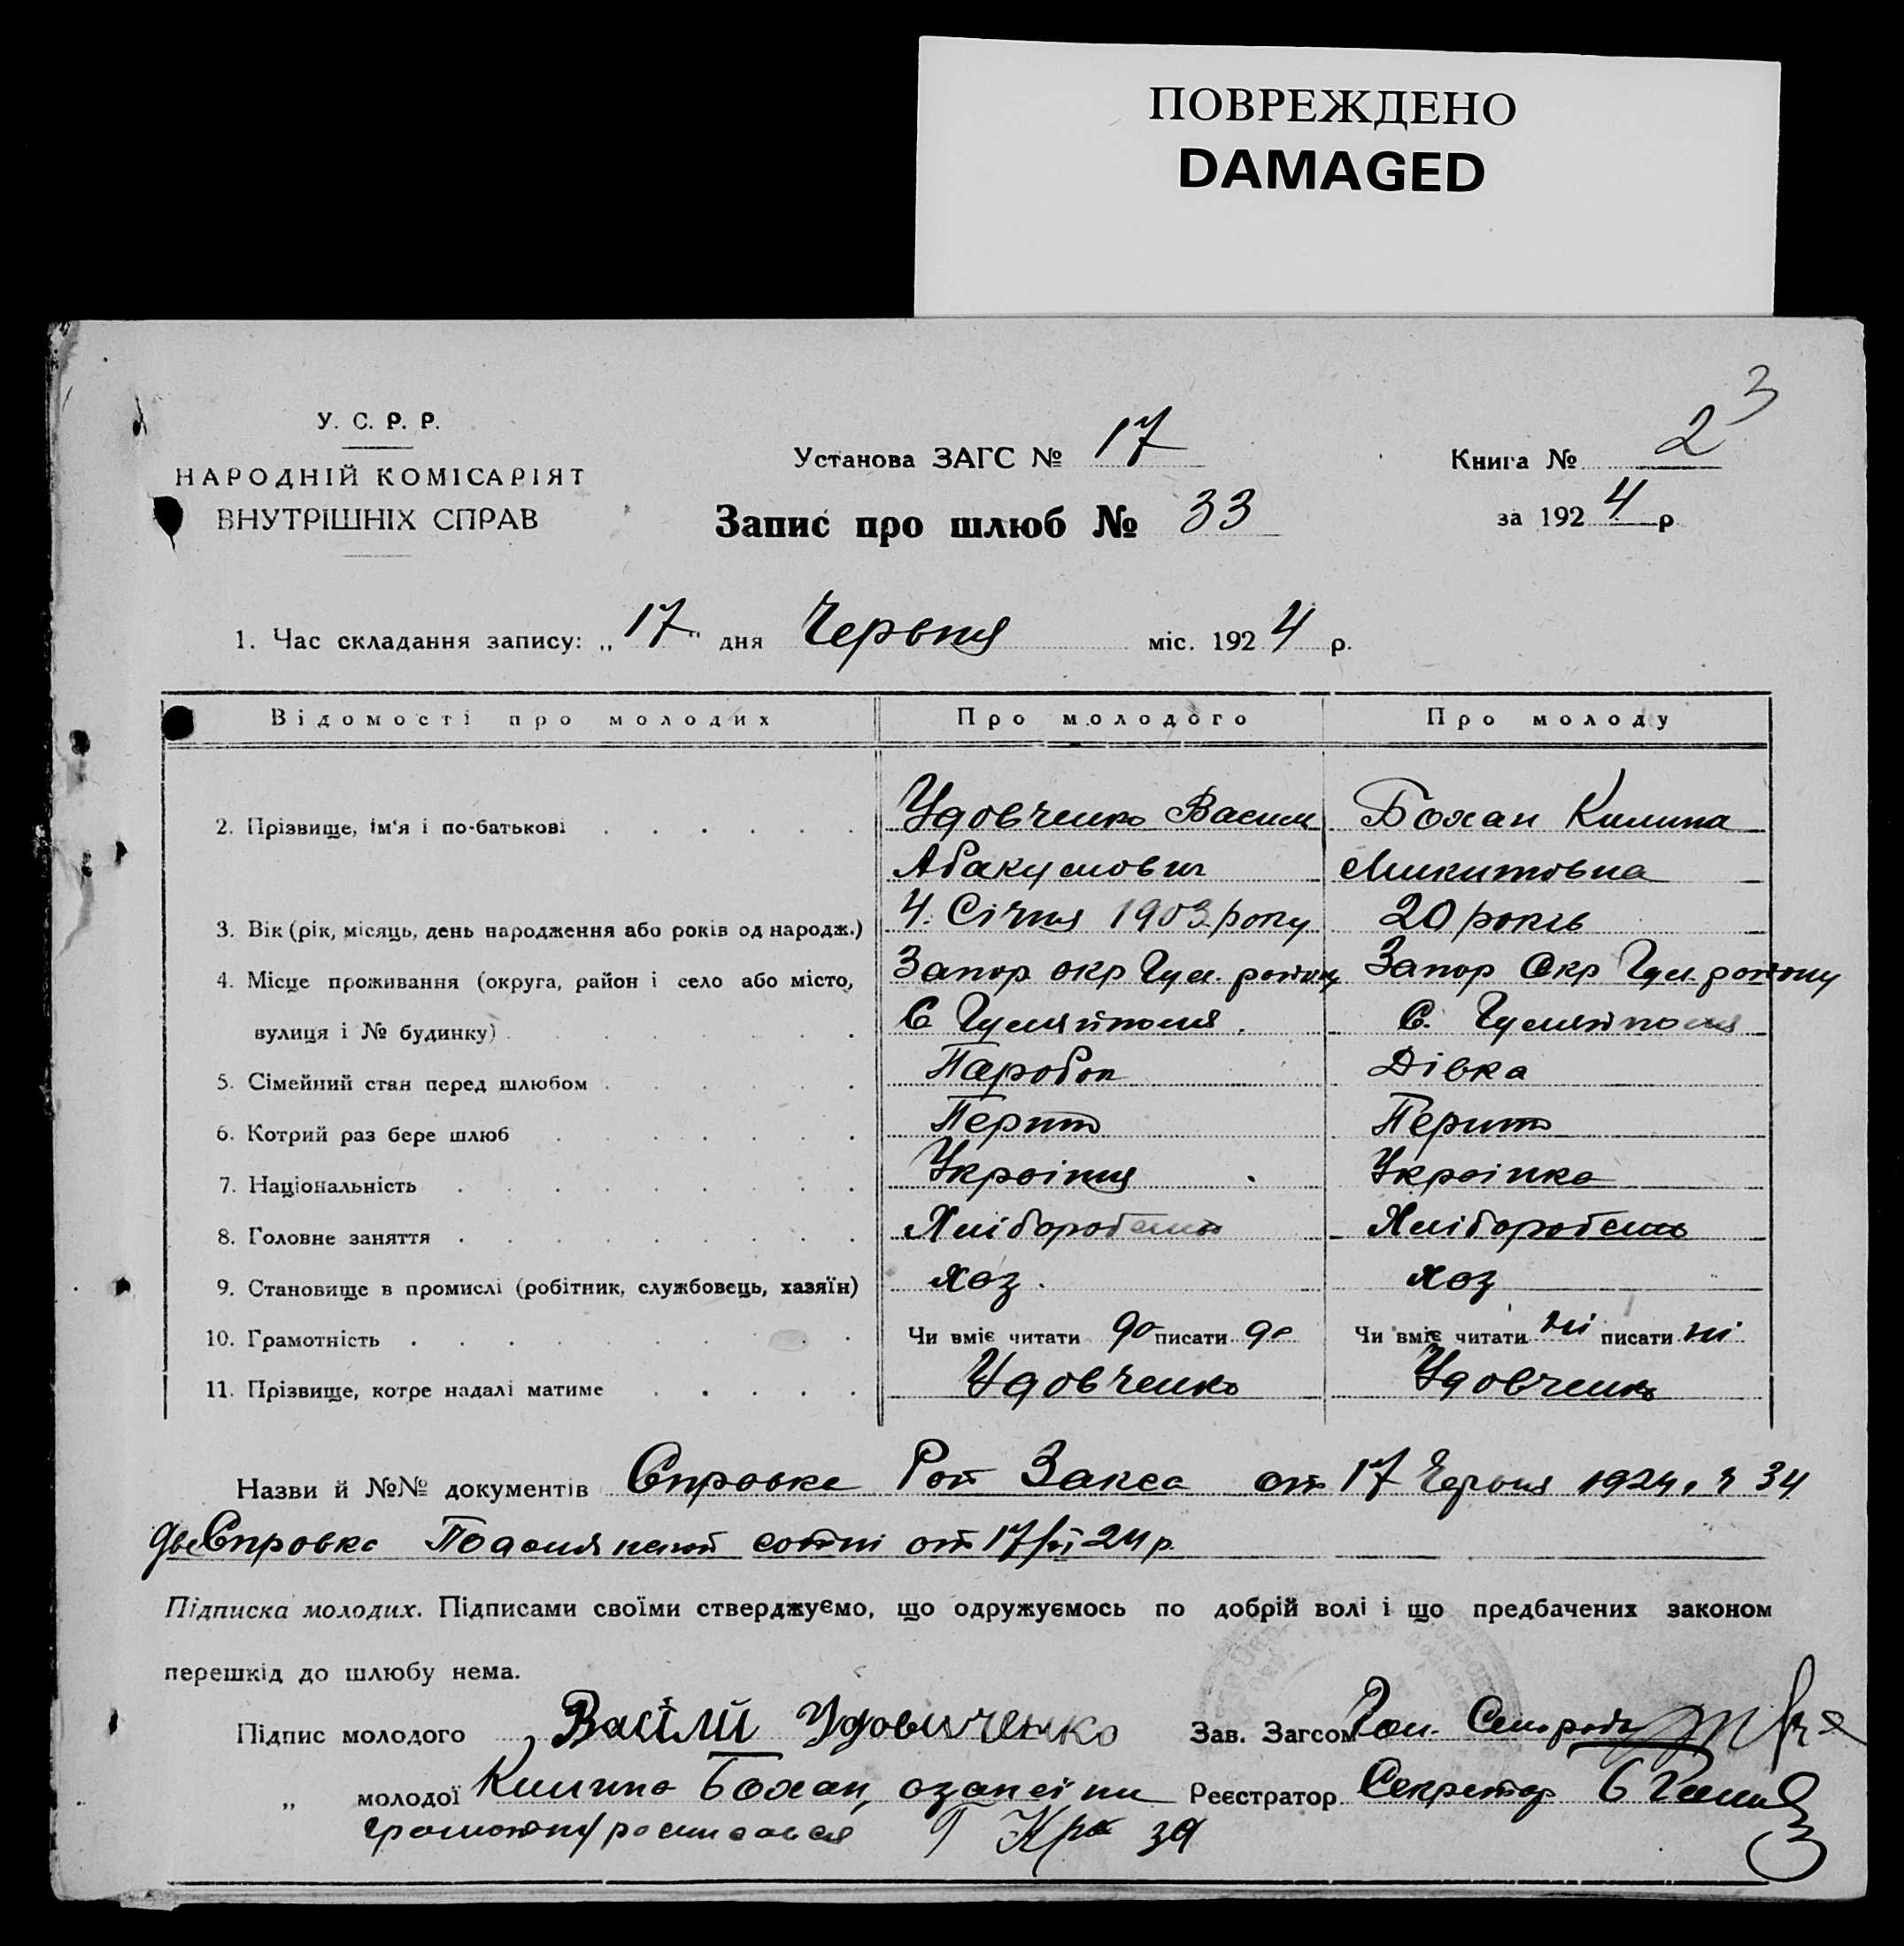 ПОВРЕЖДЕНО
DAMAGED
3
У. С. Р. Р.
НАРОДНІЙ КОМІСАРІЯТ
ВНУТРІШНІХ СПРАВ
Установа ЗАГС № 17
Книга № 2
Запис про шлюб № 33
за 1924 р
1. Час складання запису: „17" дня Червня міс. 1924 р.
Відомості про молодих Про молодого Про молоду
2. Прізвище, ім'я і по-батькові Удовченко Васил Бохан Килина
Абакумович Микитовна
3. Вік (рік, місяць, день народження або років од народж.) 4. Січня 1903 року 20 років
4. Місце проживання (округа, район і село або місто, Запор окр Гул. району Запор Окр Гул. району
вулиця і № будинку) С Гуляйполя. С. Гуляйполя
5. Сімейний стан перед шлюбом Паробок Дівка
6. Котрий раз бере шлюб Перший Перший
7. Національність Україня Украінка
8. Головне заняття Хліборобство Хліборобство
9. Становище в промислі (робітник, службовець, хазяїн) хоз. хоз
10. Грамотність Чи вміє читати да писати да Чи вміє читати ні писати ні
11. Прізвище, котре надалі матиме Удовченко Удовченко
Назви й №№ документів Справка Рай Закса от 17 Червня 1924 р ч 34
две Справка Подолянской сотні от 17/VI 24 р.
Підписка молодих. Підписами своїми стверджуємо, що одружуємось по добрій волі і що предбачених законом
перешкід до шлюбу нема.
Підпис молодого Васілій Удовиченко Зав. Загсом Гол. Сельради
„ молодої Килина Бохан, Реєстратор Секретар
росписался